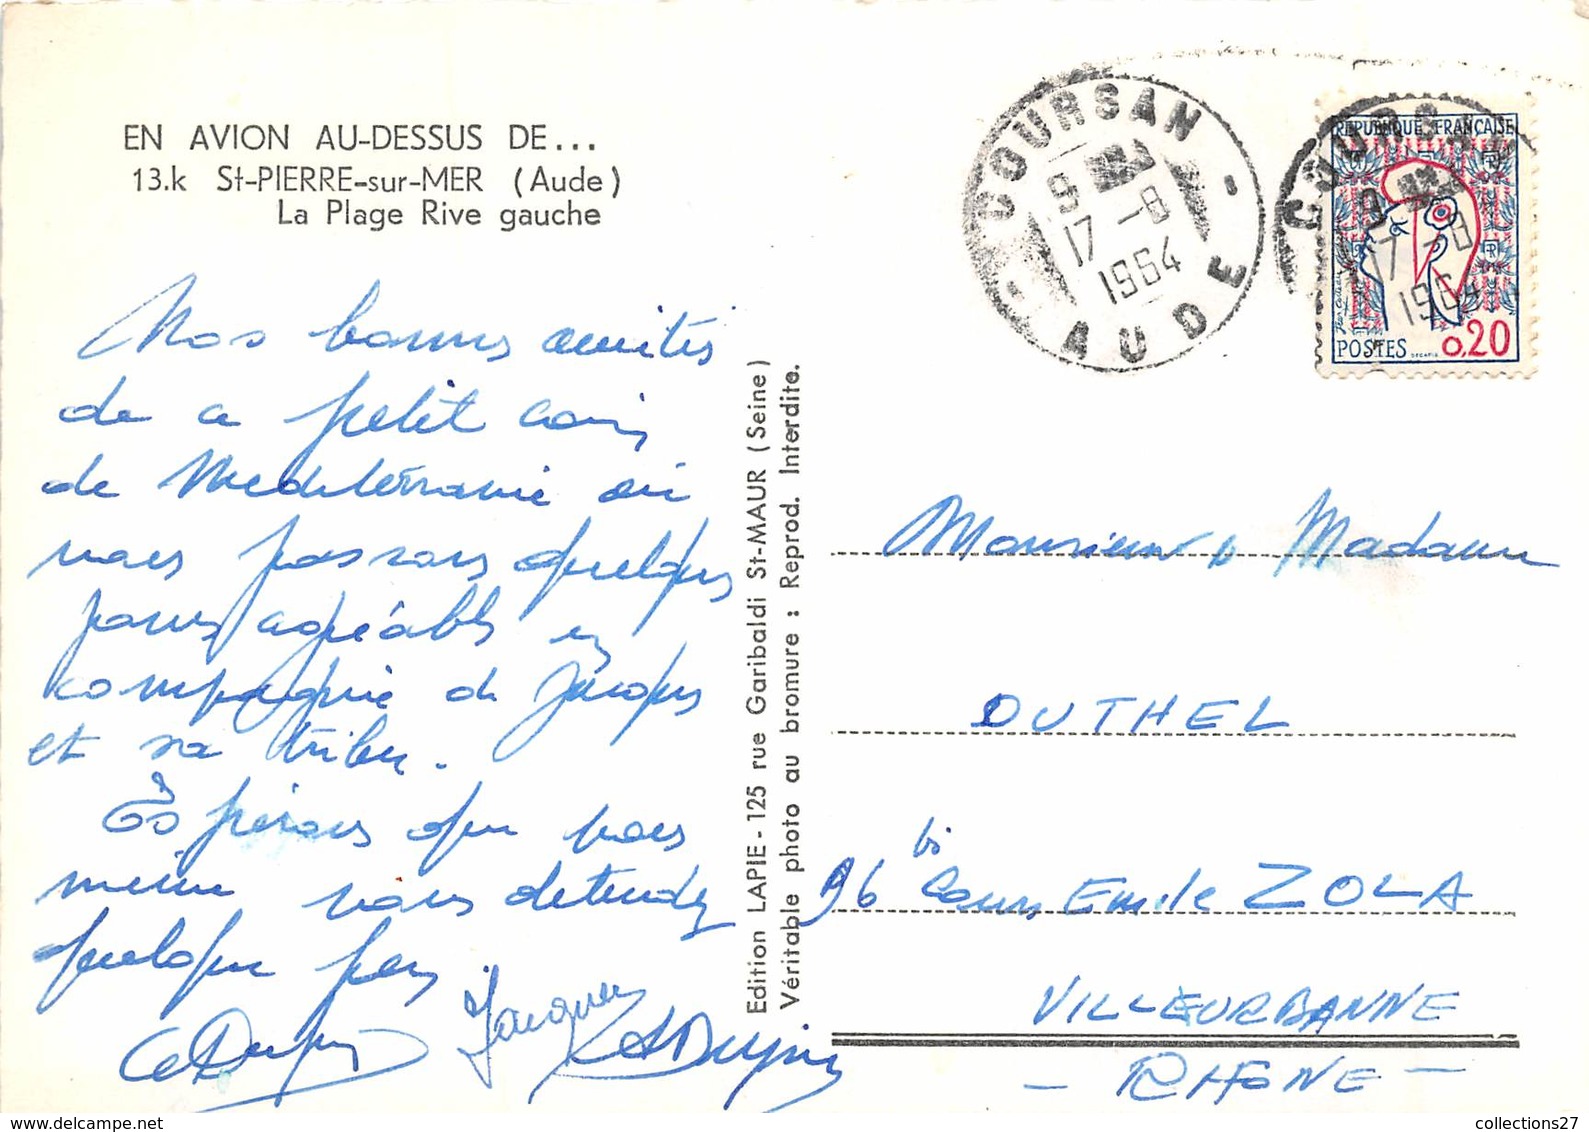 EN AVION AU-DESSUS DE...
13.k St-PIERRE-sur-MER (Aude)
La Plage Rive gauche
Nos bonnes amitiés
de ce petit coin
de Mediterrannie où
nous passons quelques
jours agréables en
compagnie de Jacques
et sa tribu.
Espérons que vous
même vous detendez
quelque peu
Jacques
Edition LAPIE - 125 rue Garibaldi St-MAUR (Seine)
Véritable photo au bromure : Reprod. Interdite.
COURSAN
9
17 -8
1964
AUDE
REPUBLIQUE FRANÇAISE
COURSAN
17 -8
1964
POSTES 0,20
Monsieur & Madame
DUTHEL
96 bis Cours Emile ZOLA
VILLEURBANNE
- RHONE -
collections27